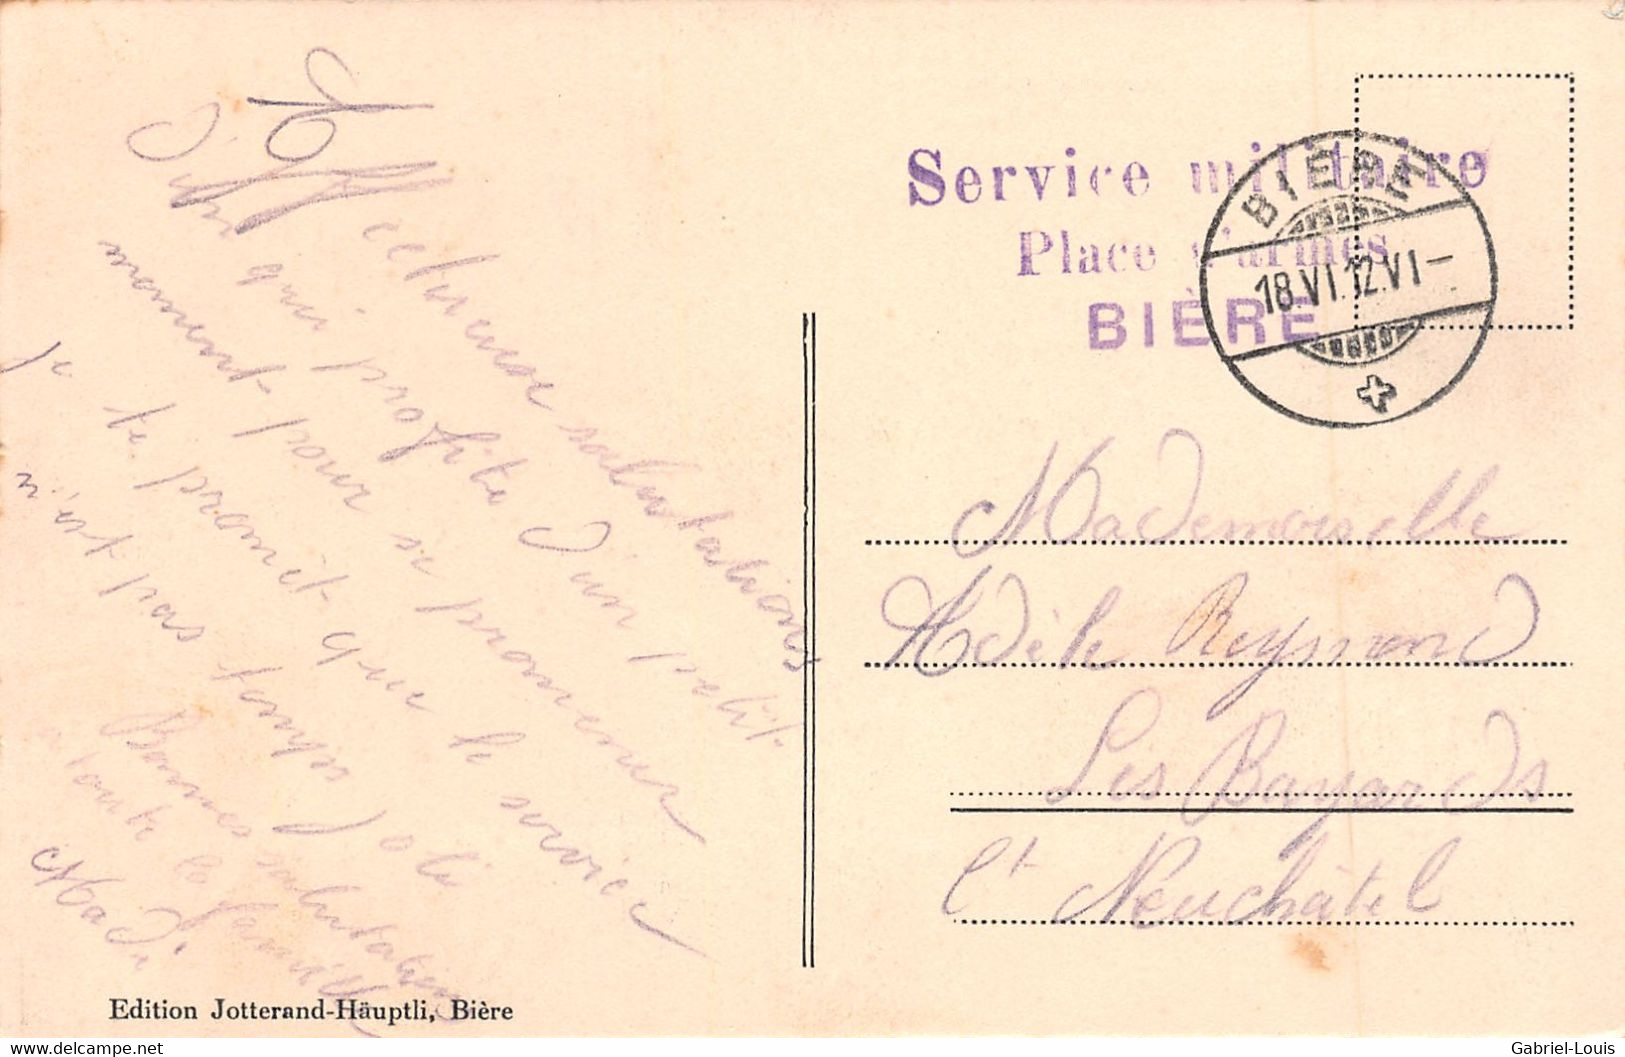 Affectueuses salutations
qui profite d'un petit
moment pour se promener
je te promèt que le service
n'est pas temps joli
Bonnes salutations
a toute la famille
Edition Jotterand-Häuptli, Bière
Service militaire
Place d'armes
BIÈRE
BIÈRE
18.VI.12.VI–
Mademoiselle
Adèle Reymond
Les Bayards
Ct Neuchâtel
delcampe.net
Gabriel-Louis